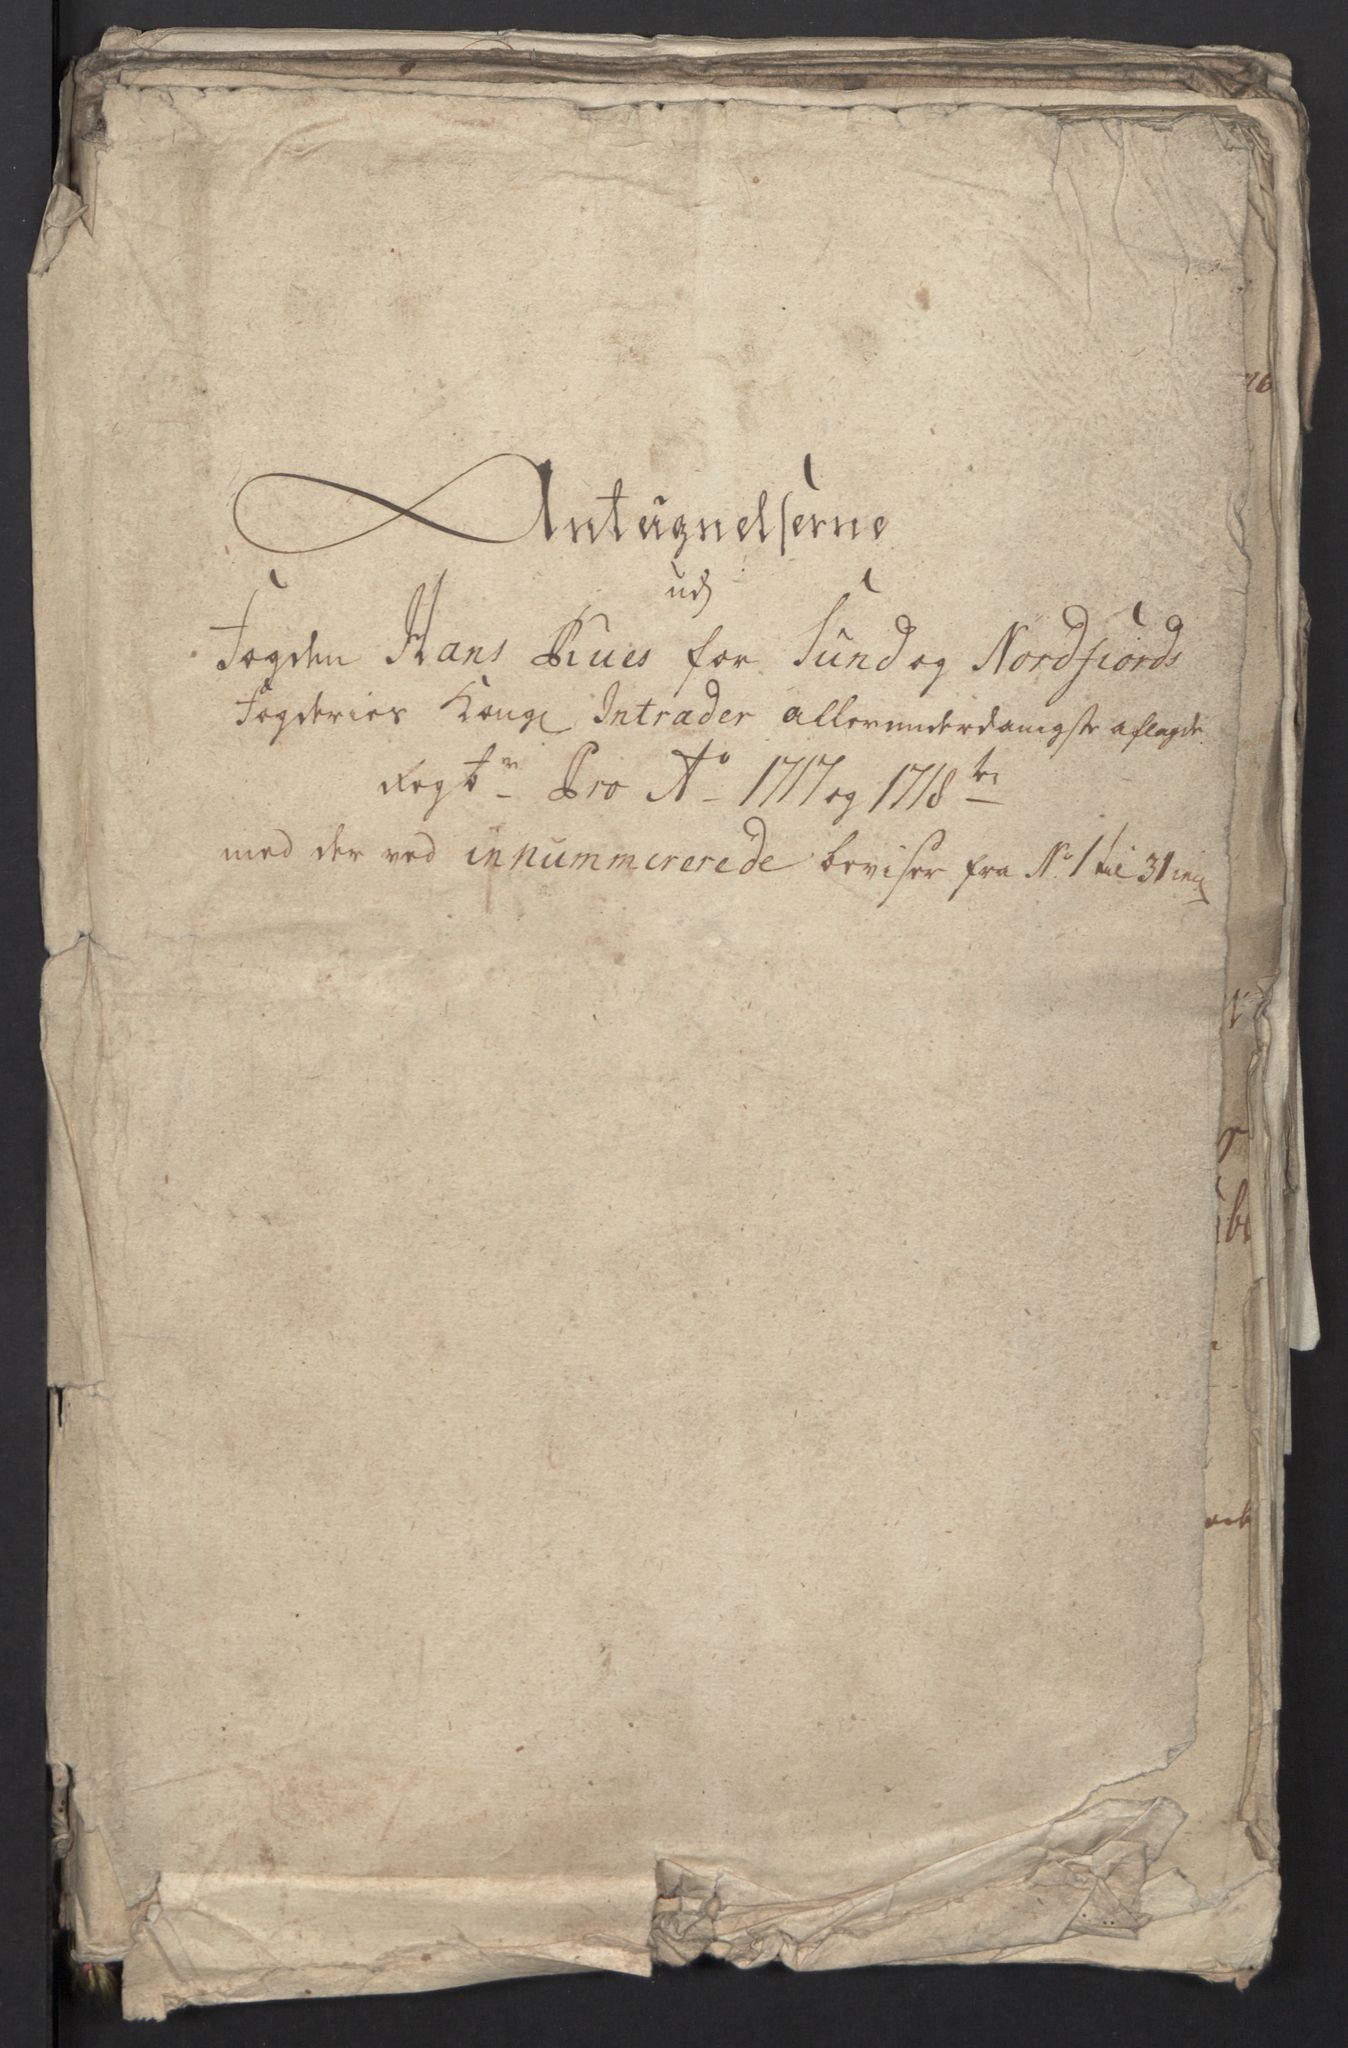 Antegnelserne
ud
Fogden Hans Rues for Sund og Nordfiords
Fogderies Kongl Intrader allerunderdanigste aflagde
Regb Pro Ao 1717 og 1718
med der ved innummererede beviser fra No 1 til 31 incl